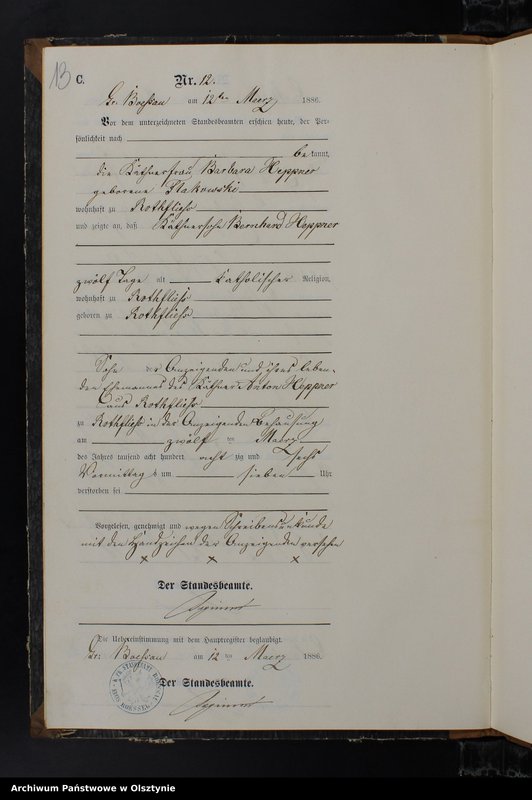 13
C.
Nr. 12.
Gr. Boessau am 12ten Maerz 1886.
Vor dem unterzeichneten Standesbeamten erschien heute, der Per-
sönlichkeit nach
bekannt,
die Käthnerfrau Barbara Heppner
geborene
wohnhaft zu Rothfließ
und zeigte an, daß Käthnersohn Bernhard Heppner
zwölf Tage alt katholischer Religion,
wohnhaft zu Rothfließ
geboren zu Rothfließ
Sohn der Anzeigenden und ihres leben-
den Ehemannes des Käthner Anton Heppner
aus Rothfließ
zu Rothfließ in der Anzeigenden Behausung
am zwölf ten Maerz
des Jahres tausend acht hundert acht zig und sechs
Vormittags um sieben Uhr
verstorben sei
Vorgelesen, genehmigt und wegen Schreibensunkunde
mit den Handzeichen der Anzeigenden versehen
x x x
Der Standesbeamte.
Die Uebereinstimmung mit dem Hauptregister beglaubigt.
Gr. Boessau am 12 ten Maerz 1886.
Der Standesbeamte.
Archiwum Państwowe w Olsztynie